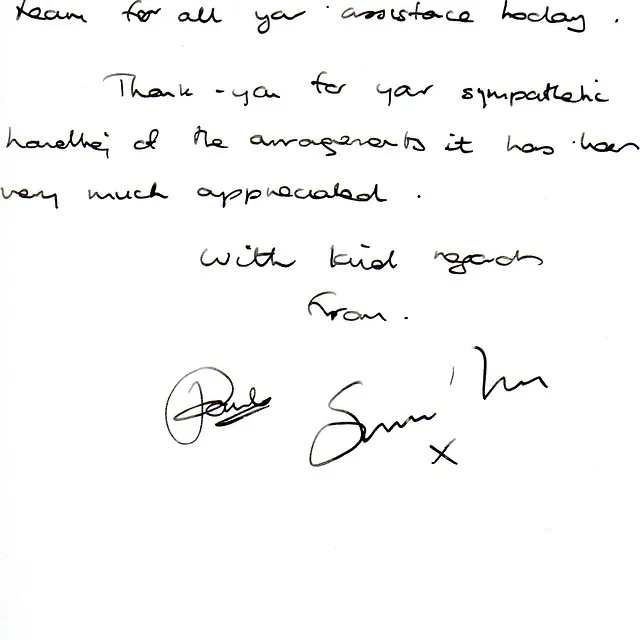 team for all your assistance today.
Thank-you for your sympathetic
handling of the arrangements it has been
very much appreciated.
With kind regards
From.
x